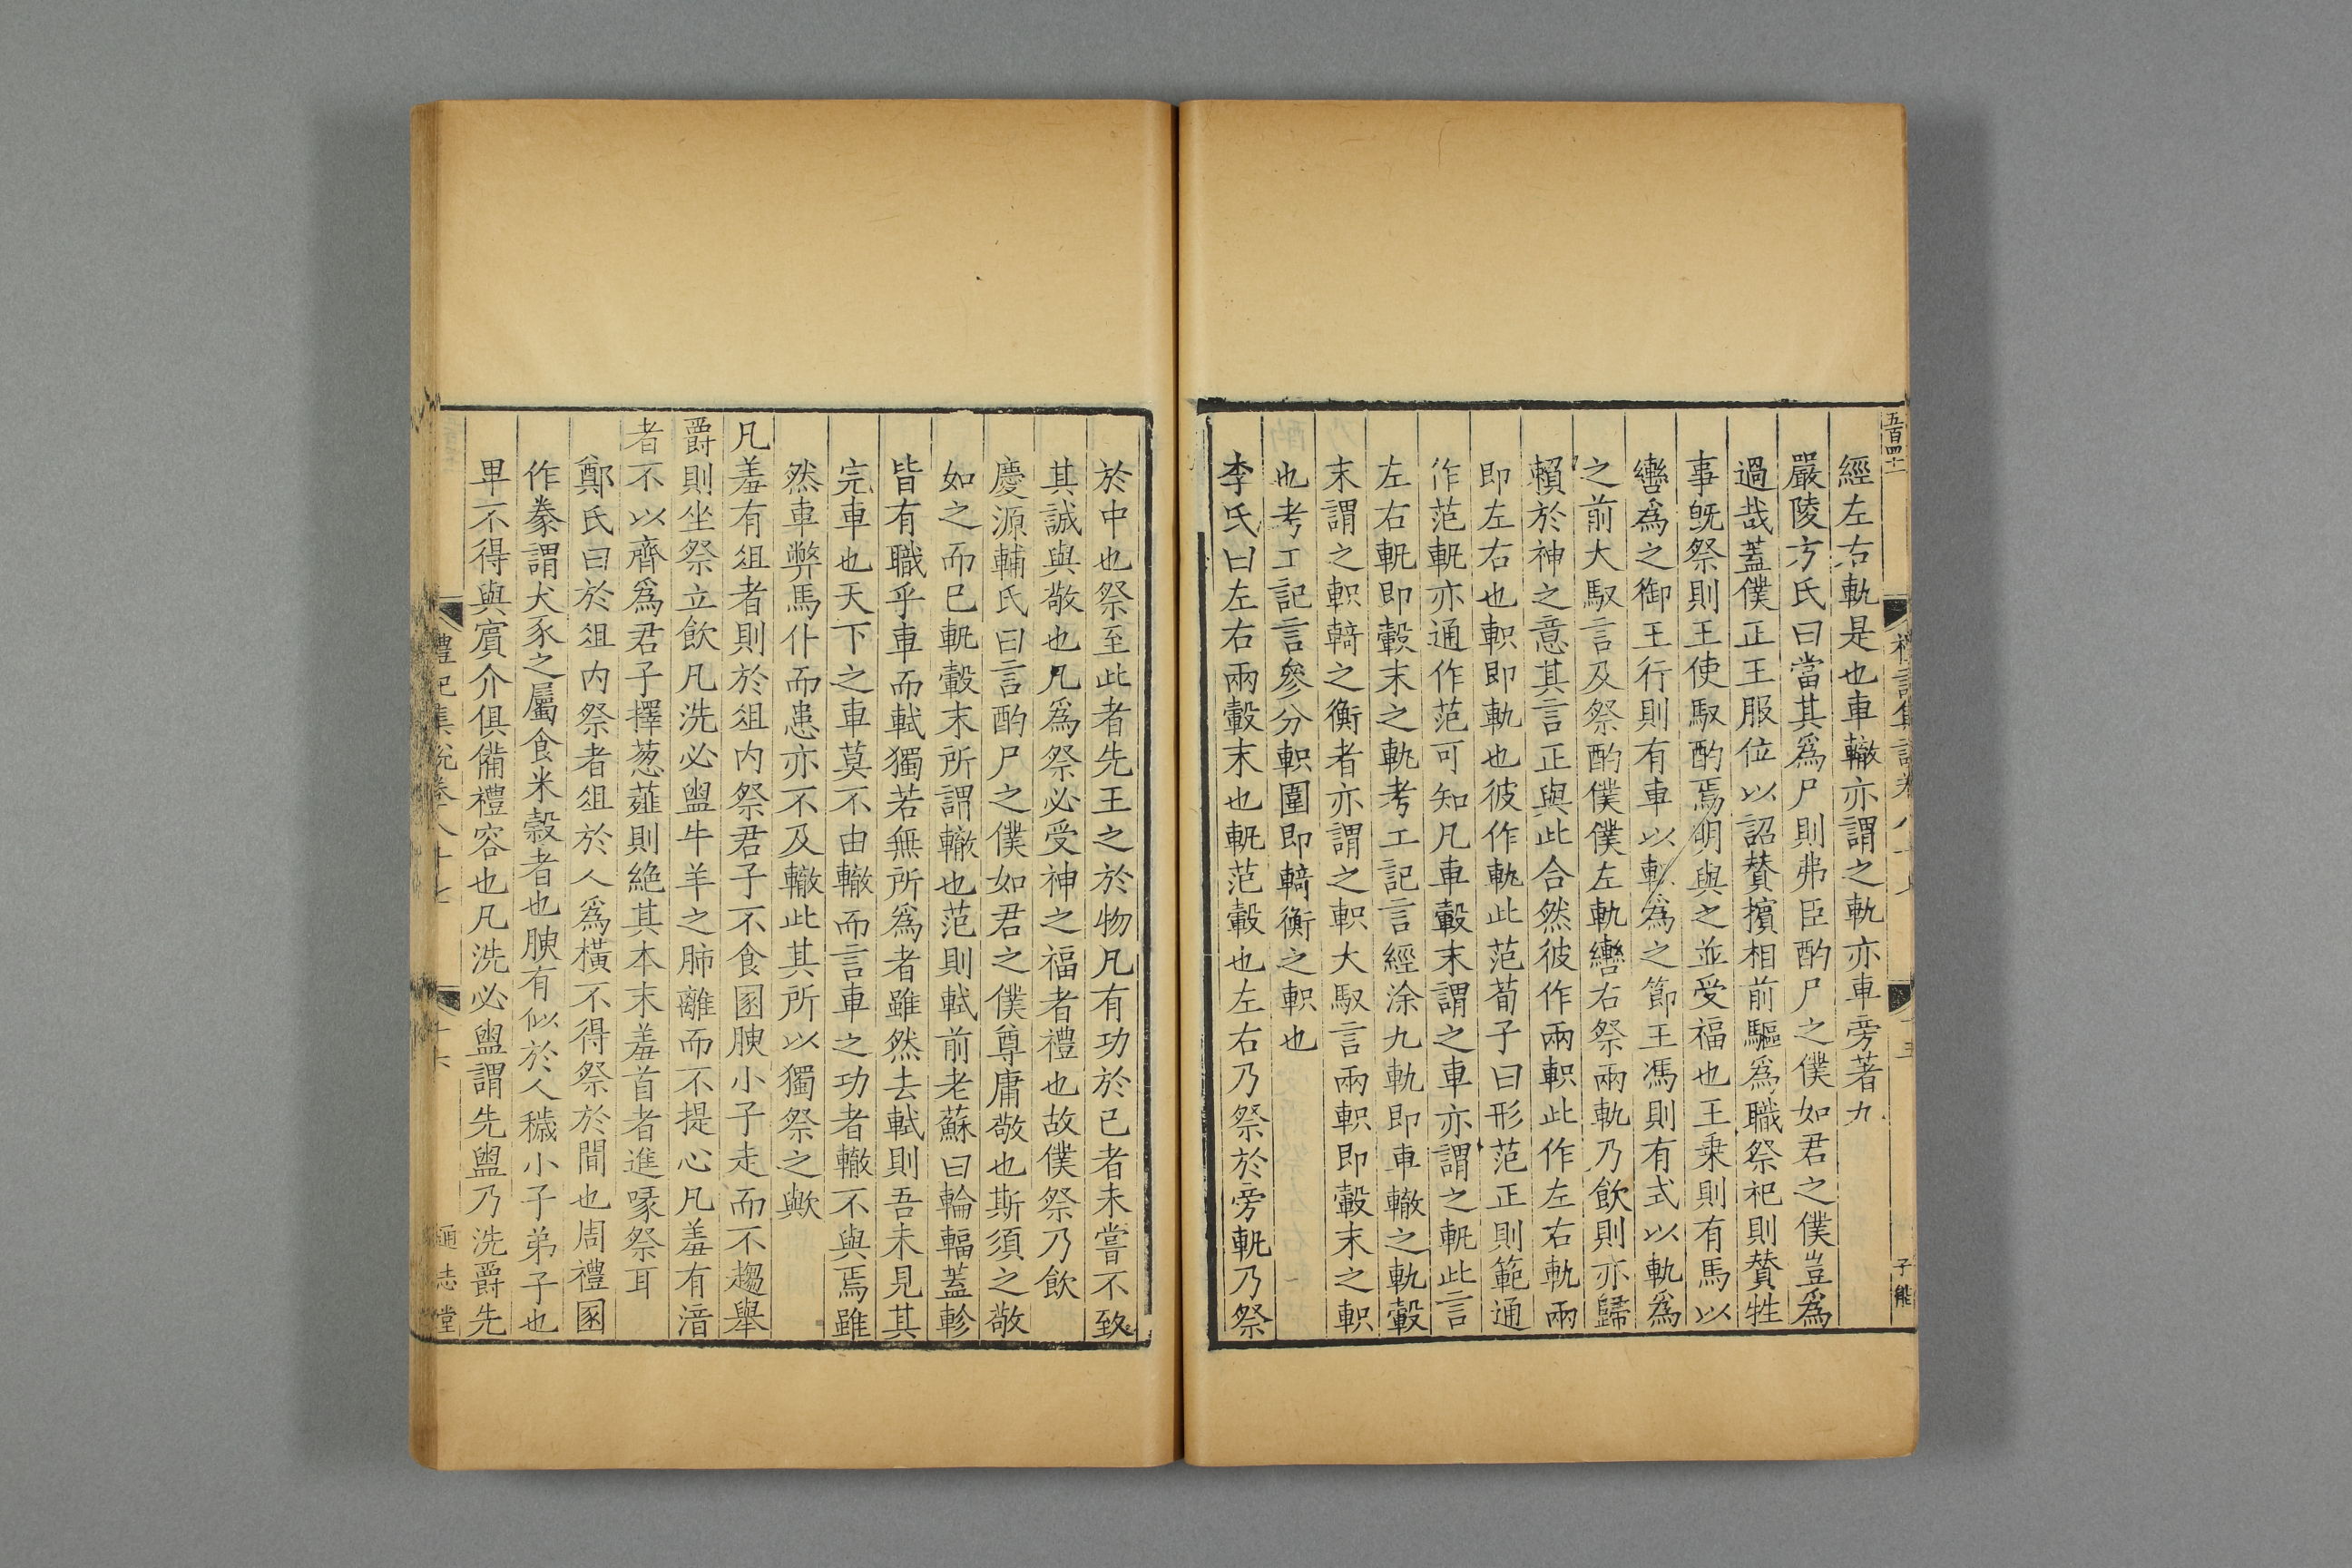 五百四十
經左右軌是也車轍亦謂之軌亦車旁著九
嚴陵方氏曰當其爲尸則弗臣酌尸之僕如君之僕豈爲
過哉蓋僕正王服位以詔賛擯相前驅爲職祭祀則賛牲
事旣祭則王使馭酌焉明與之並受福也王乗則有馬以
轡爲之御王行則有車以軌爲之節王馮則有式以軌爲
之前大馭言及祭酌僕僕左軌轡右祭兩軌乃飮則亦歸
賴於神之意其言正與此合然彼作兩軹此作左右軌兩
即左右也軹即軌也彼作軓此范荀子曰形范正則範通
作范軓亦通作范可知凡車轂末謂之車亦謂之軓此言
左右軓即轂末之軌考工記言經涂九軌即車轍之軌轂
末謂之軹輢之衡者亦謂之軹大馭言兩軹即轂末之軹
也考工記言參分軹圍即輢衡之軹也
李氏曰左右兩轂末也軓范轂也左右乃祭於旁軓乃祭
於中也祭至此者先王之於物凡有功於已者未嘗不致
其誠與敬也凡爲祭必受神之福者禮也故僕祭乃飮
慶源輔氏曰言酌尸之僕如君之僕尊庸敬也斯須之敬
如之而已軓轂末所謂轍也范則軾前老蘇曰輪輻蓋軫
皆有職乎車而軾獨若無所爲者雖然去軾則吾未見其
完車也天下之車莫不由轍而言車之功者轍不與焉雖
然車弊馬仆而患亦不及轍此其所以獨祭之歟
凡羞有俎者則於俎内祭君子不食圂腴小子走而不趨舉
爵則坐祭立飮凡洗必盥牛羊之肺離而不提心凡羞有湆
者不以齊爲君子擇葱薤則絶其本末羞首者進喙祭耳
鄭氏曰於俎内祭者俎於人爲橫不得祭於間也周禮圂
作豢謂犬豕之屬食米穀者也腴有似於人穢小子弟子也
畢不得與賓介俱備禮容也凡洗必盥謂先盥乃洗爵先
禮記集說卷八十七
十六
通志堂